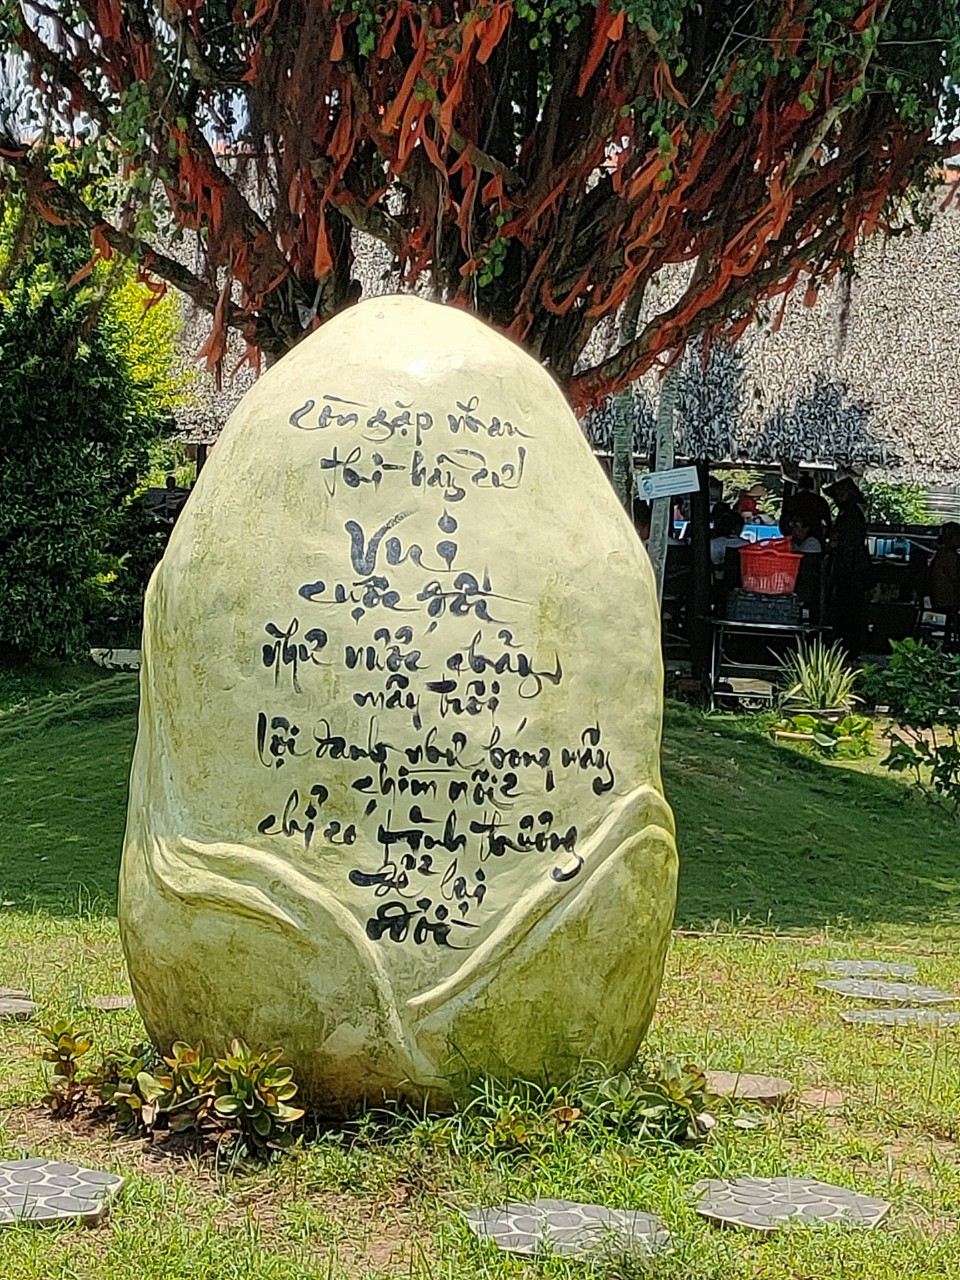 Còn gặp nhau
thì hãy cứ
Vui
cuộc đời
như nước chảy
mây trôi
lợi danh như bóng mây
chìm nổi
chỉ có tình thương
để lại
đời